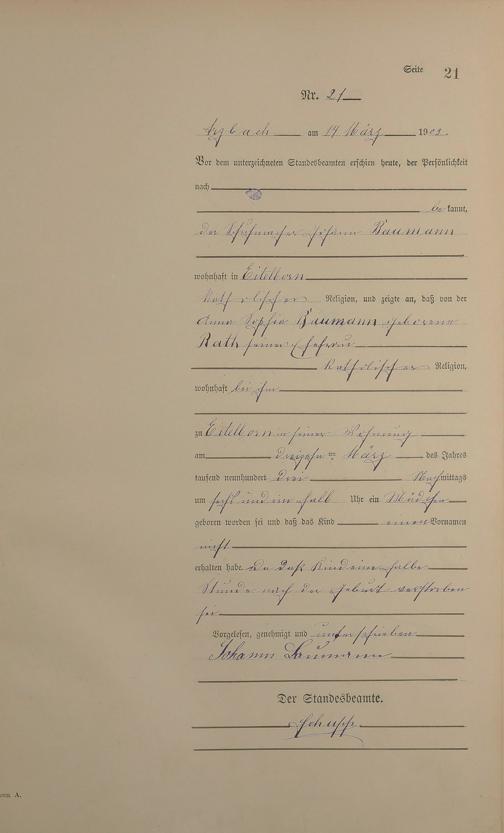 Seite 21
Nr. 21
Arzbach am 14 März 1903.
Vor dem unterzeichneten Standesbeamten erschien heute, der Persönlichkeit
nach
be kannt,
der Schuhmacher Johann Baumann
wohnhaft in Eitelborn
katholischer Religion, und zeigte an, daß von der
Anna Sophia Baumann geborene
Rath seiner Ehefrau
katholischer Religion,
wohnhaft bei ihm
zu Eitelborn in seiner Wohnung
am dreizehn ten März des Jahres
tausend neunhundert drei Nachmittags
um sechs und ein halb Uhr ein Mädchen
geboren worden sei und daß das Kind einen Vornamen
nicht
erhalten habe. Da das Kind eine halbe
Stunde nach der Geburt verstorben
sei
Vorgelesen, genehmigt und unterschrieben
Johann Baumann
Der Standesbeamte.
Schupp
A.